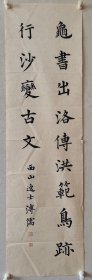 龜書出洛傳洪範鳥跡
行沙變古文
西山逸士溥儒